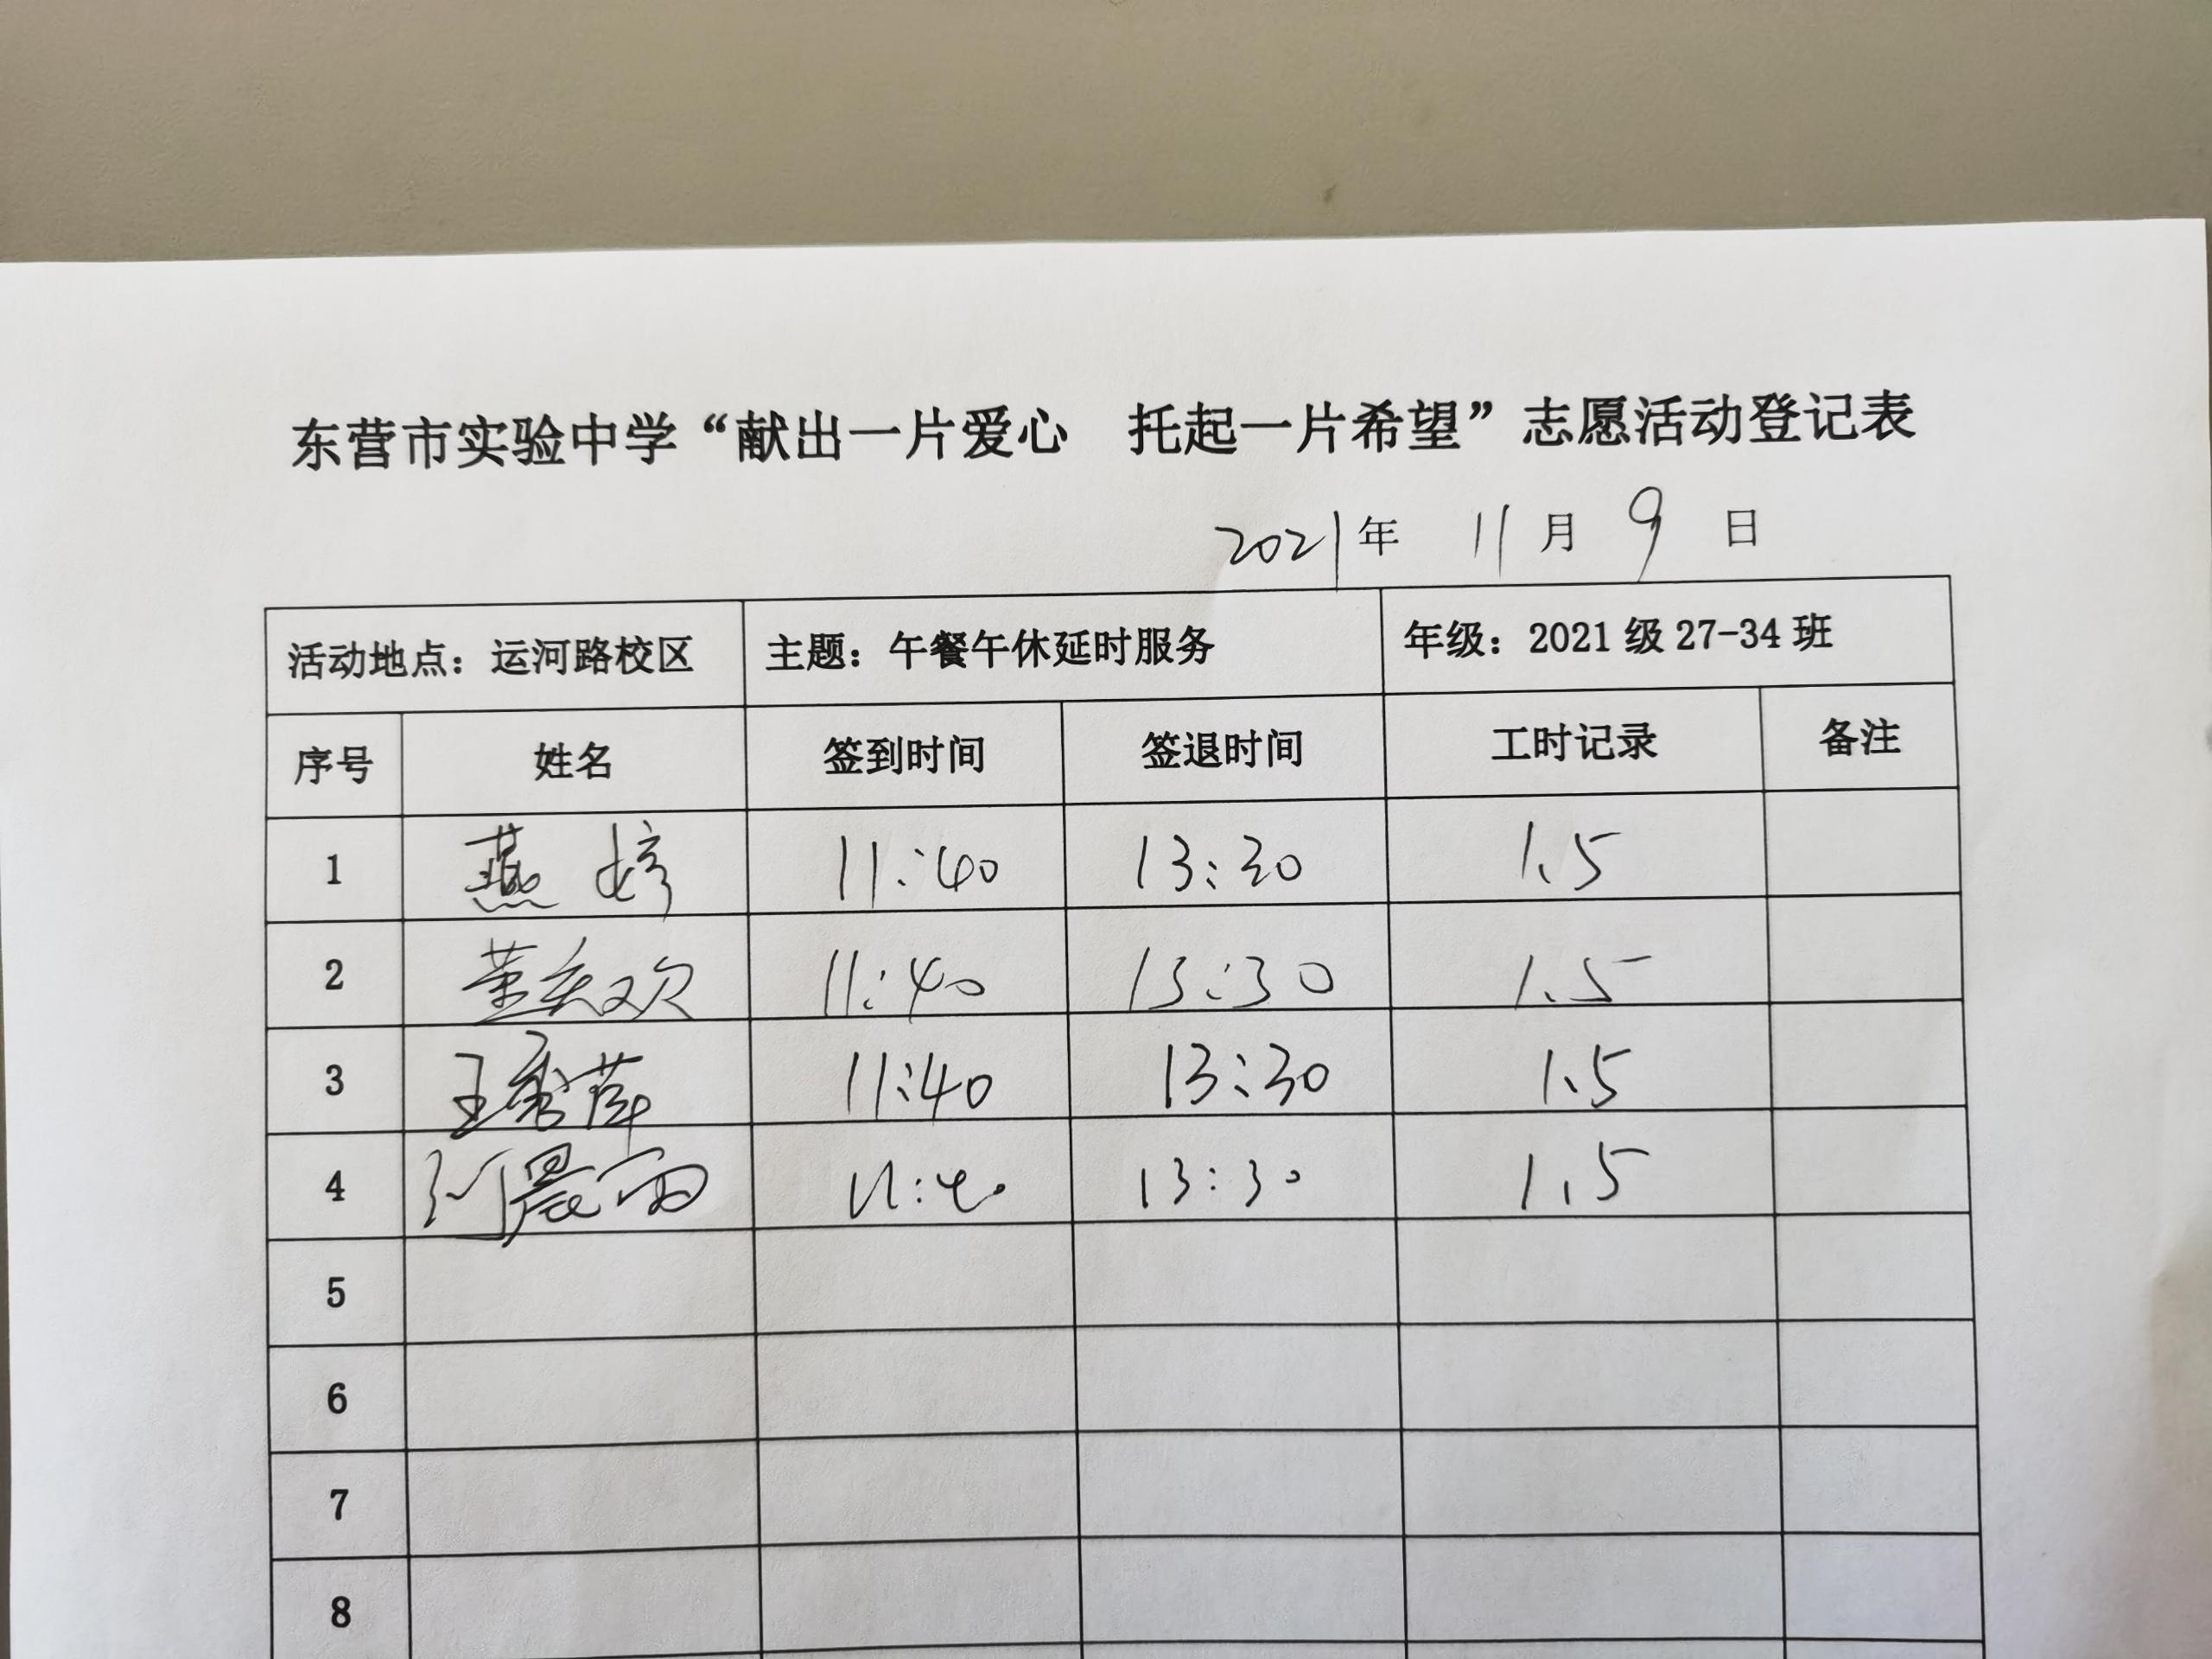 东营市实验中学“献出一片爱心 托起一片希望”志愿活动登记表
2021年 11月 9 日
活动地点：运河路校区 主题：午餐午休延时服务 年级：2021级27-34班
序号 姓名 签到时间 签退时间 工时记录 备注
1 燕婷 11:40 13:30 1.5
2 董庆欢 11:40 13:30 1.5
3 王秀萍 11:40 13:30 1.5
4 11:40 13:30 1.5
5
6
7
8